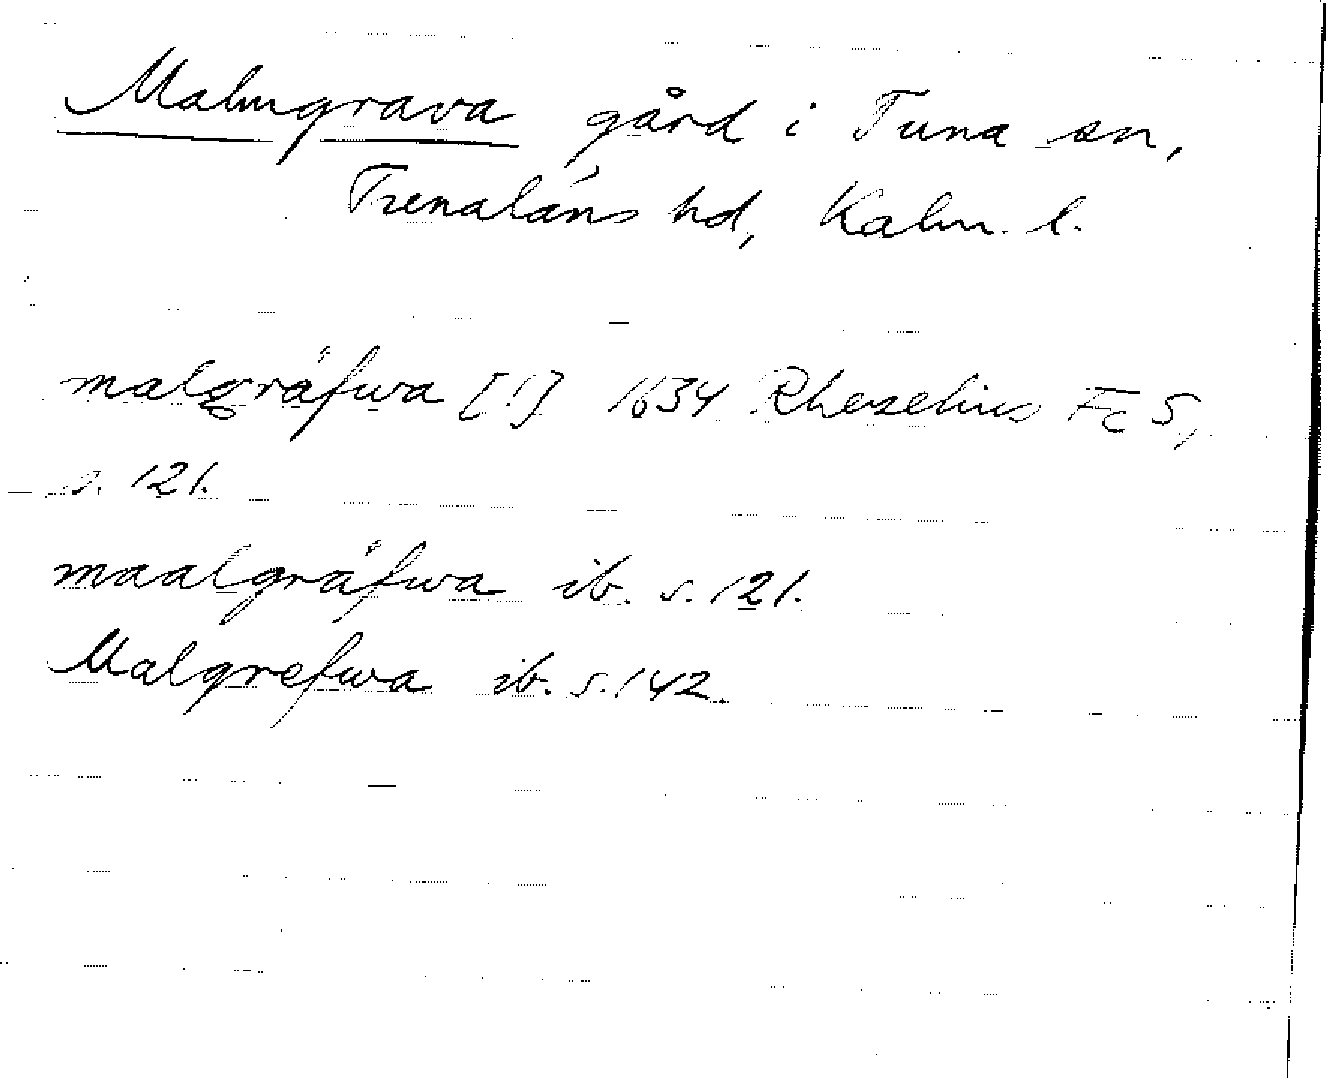 Malmgrava gård i Tuna sn,
Tunaläns hd, Kalm. l.
malgräfwa [!] 1634 Rhezelius FCS,
s. 121.
maalgräfwa ib. s. 121.
Malgrefwa ib. s. 142.